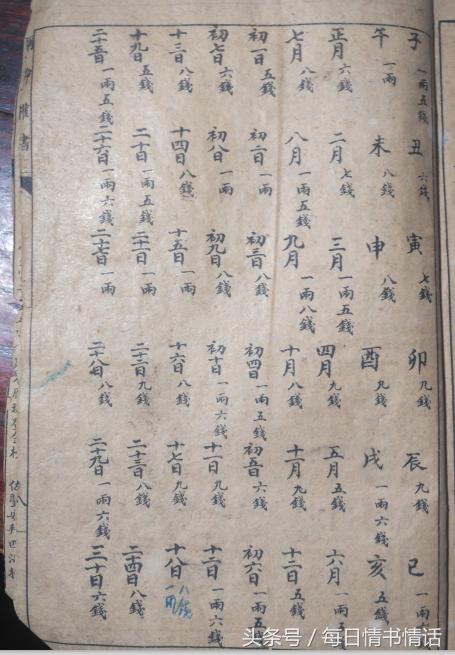 子 一兩五錢 丑 六錢 寅 七錢 卯 九錢 辰 九錢 巳 一兩
午 一兩 未 八錢 申 八錢 酉 九錢 戌 一兩六錢 亥 五錢
正月 六錢 二月 七錢 三月 一兩五錢 四月 九錢 五月 五錢 六月 一兩五
七月 八錢 八月 一兩五錢 九月 一兩八錢 十月 八錢 十一月 九錢 十二月 五錢
初一日 五錢 初二日 一兩 初三日 八錢 初四日 一兩五錢 初五日 六錢 初六日 一兩五錢
初七日 六錢 初八 一兩 初九日 八錢 初十日 一兩六錢 十一日 九錢 十二日 一兩六錢
十三日 八錢 十四日 八錢 十五日 一兩 十六日 八錢 十七日 九錢 十八日 八錢 一兩
十九日 五錢 二十日 一兩五錢 二十一日 一兩 二十二日 九錢 二十三日 八錢 二十四日 八錢
二十五日 一兩五錢 二十六日 一兩六錢 二十七日 一兩 二十八日 八錢 二十九日 一兩六錢 三十日 六錢
头条号 / 每日情书情话